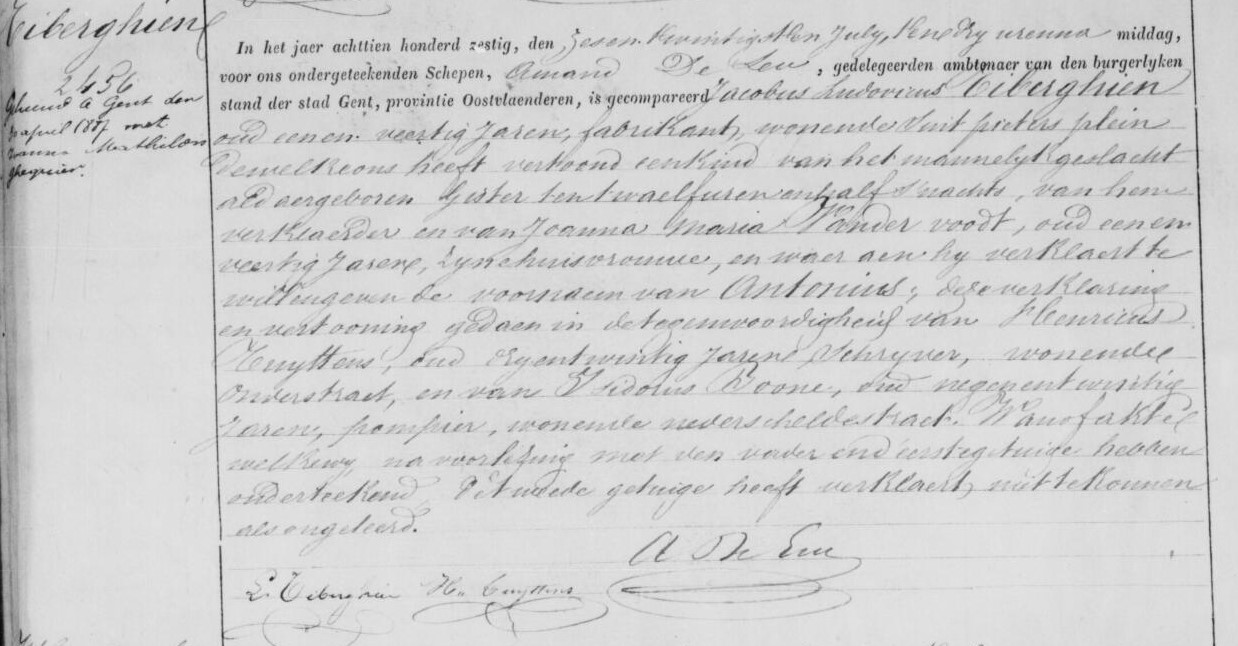 Tiberghien
2456
Gehuwd te Gent den
april 1887 met
Joanna Mathilda
In het jaer achttien honderd zestig, den zesen twintigsten July, ten dry uren na middag,
voor ons ondergeteekenden Schepen, Amand De Leu, gedelegeerden ambtenaer van den burgerlyken
stand der stad Gent, provintie Oostvlaenderen, is gecompareerd Jacobus Ludovicus Tiberghien
oud eenen veertig Jaren, fabrikant, wonende Sint pieters plein
dewelke ons heeft vertoond een kind van het mannelyk geslacht
aldaer geboren Gister ten twaelf uren en half 's nachts, van hem
verklaerder en van Joanna Maria Vander voodt, oud een en
veertig Jaren, zyne huisvrouwe, en waer aen hy verklaert te
willen geven de voornaem van Antonius; deze verklaring
en vertooning gedaen in de tegenwoordigheid van Henricus
Huyttens, oud dryentwintig Jaren, Schryver, wonende
Onderstraet, en van Isidorus Boone, oud negenentwintig
Jaren, pompier, wonende nederscheldestraet. Waer of akte
welke wy na voorlezing met den vader end' eerste getuige hebben
onderteekend, de tweede getuige heeft verklaert niet te konnen
als ongeleerd.
A De Leu
L. Tiberghien Hn Huyttens